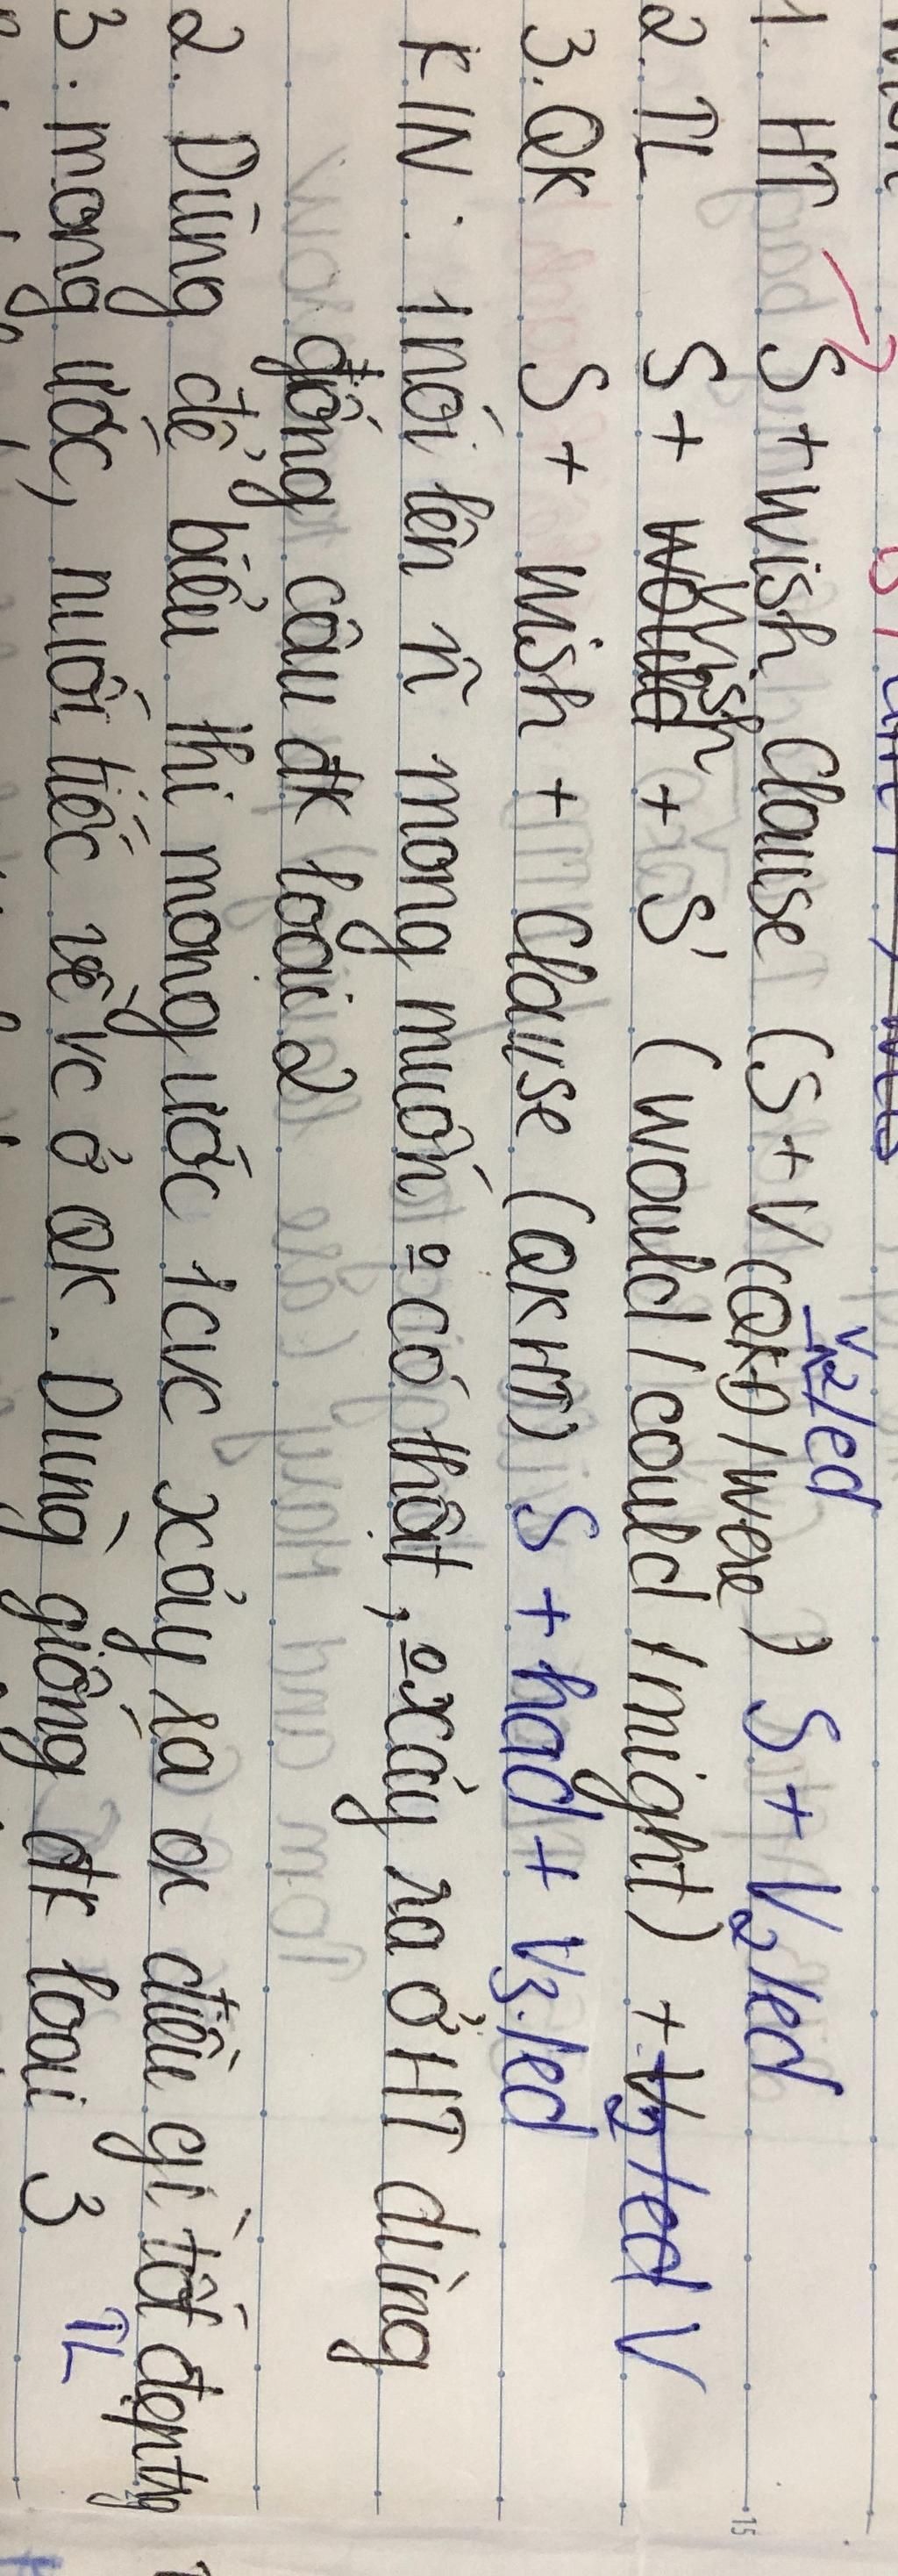 1. HT S + wish clause (S + V (QKĐ) / were) S + V2/ed
V2/ed
2. TL S + wish + S' (would / could / might) + V
3. QK S + wish + clause (QKHT) S + had + V3/ed
KN: 1 nói lên n~ mong muốn o có thật, o xảy ra ở HT dùng
giống câu đk loại 2
2. Dùng để biểu thị mong ước 1 cvc xảy ra or điều gì tốt đẹp
TL
3. mong ước, nuối tiếc về vc ở QK. Dùng giống đk loại 3
15